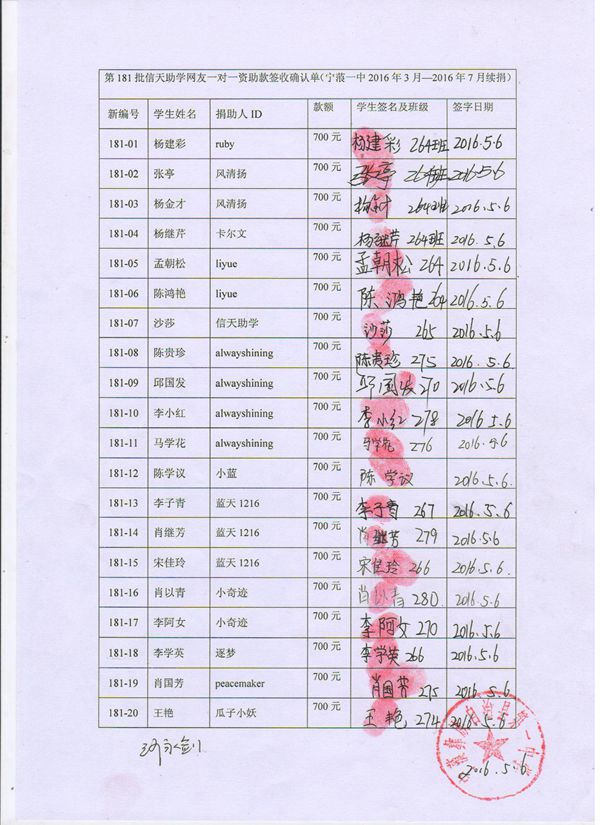 第181批信天助学网友一对一资助款签收确认单(宁蒗一中2016年3月—2016年7月续捐)
新编号 学生姓名 捐助人ID 款额 学生签名及班级 签字日期
181-01 杨建彩 ruby 700元 杨建彩 264班 2016.5.6
181-02 张亭 风清扬 700元 张亭 264班 2016.5.6
181-03 杨金才 风清扬 700元 杨金才 264班 2016.5.6
181-04 杨继芹 卡尔文 700元 杨继芹 264班 2016.5.6
181-05 孟朝松 liyue 700元 孟朝松 264 2016.5.6
181-06 陈鸿艳 liyue 700元 陈鸿艳 264 2016.5.6
181-07 沙莎 信天助学 700元 沙莎 265 2016.5.6
181-08 陈贵珍 alwayshining 700元 陈贵珍 275 2016.5.6
181-09 邱国发 alwayshining 700元 邱国发 270 2016.5.6
181-10 李小红 alwayshining 700元 李小红 278 2016.5.6
181-11 马学花 alwayshining 700元 马学花 276 2016.5.6
181-12 陈学议 小蓝 700元 陈学议 2016.5.6
181-13 李子青 蓝天1216 700元 李子青 267 2016.5.6
181-14 肖继芳 蓝天1216 700元 肖继芳 279 2016.5.6
181-15 宋佳玲 蓝天1216 700元 宋佳玲 266 2016.5.6.
181-16 肖以青 小奇迹 700元 肖以青 280 2016.5.6
181-17 李阿女 小奇迹 700元 李阿女 270 2016.5.6
181-18 李学英 逐梦 700元 李学英 266 2016.5.6
181-19 肖国芳 peacemaker 700元 肖国芳 275 2016.5.6
181-20 王艳 瓜子小妖 700元 王艳 274 2016.5.6
2016.5.6